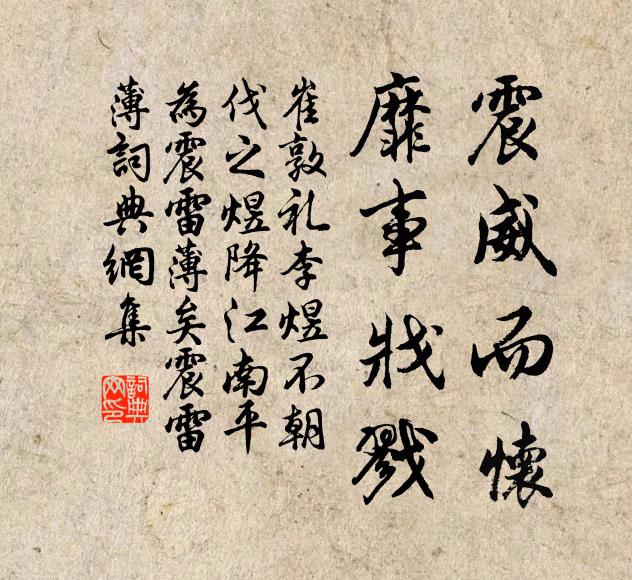 震威而懷
靡事戕戮
崔敦礼李煜不朝
伐之煜降江南平
為震雷薄矣震雷
薄詞典網集
詞典
网印